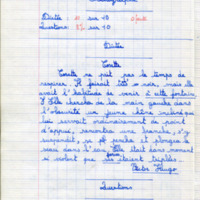 Dictée : sur 10
Questions : 8 sur 10
Dictée
Cosette
Cosette ne put pas le temps de
respirer. Il faisait très noir, mais elle
avait l'habitude de venir à cette fontaine.
Elle chercha de la main gauche dans
l'obscurité un jeune chêne incliné qui
lui servait ordinairement de point
d'appui, rencontra une branche, s'y
suspendit, se pencha et plongea le
seau dans l'eau. Elle était dans un moment
si violent que ses forces étaient triplées.
Victor Hugo
Questions